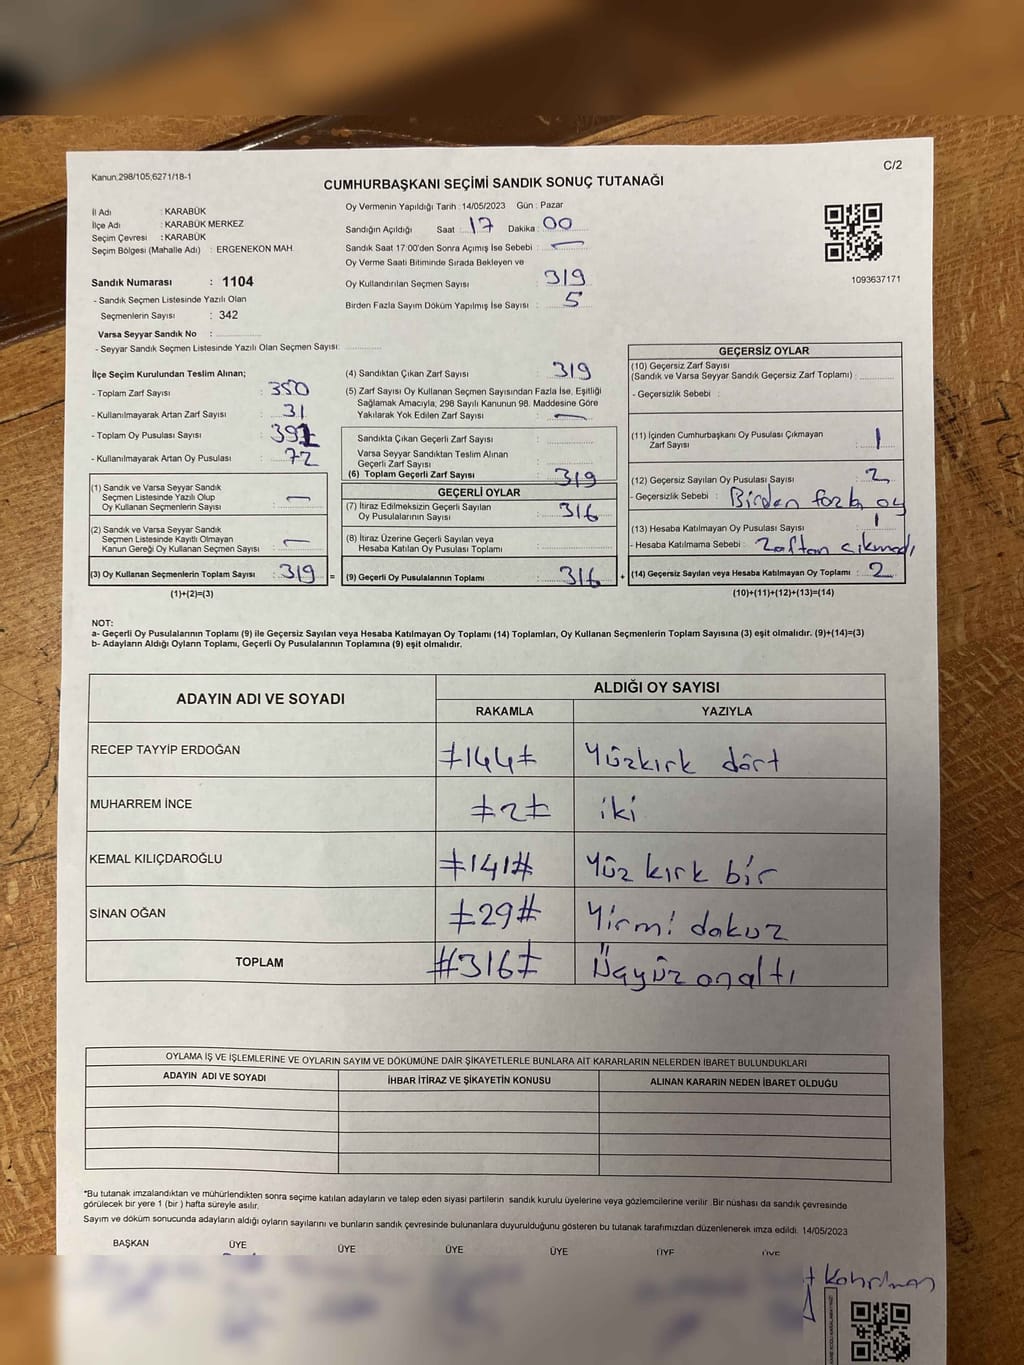 Kanun:298/105,6271/18-1
C/2
CUMHURBAŞKANI SEÇİMİ SANDIK SONUÇ TUTANAĞI
İl Adı : KARABÜK
İlçe Adı : KARABÜK MERKEZ
Seçim Çevresi : KARABÜK
Seçim Bölgesi (Mahalle Adı) : ERGENEKON MAH.
Sandık Numarası : 1104
- Sandık Seçmen Listesinde Yazılı Olan
Seçmenlerin Sayısı : 342
Varsa Seyyar Sandık No :
- Seyyar Sandık Seçmen Listesinde Yazılı Olan Seçmen Sayısı:
Oy Vermenin Yapıldığı Tarih : 14/05/2023 Gün : Pazar
Sandığın Açıldığı Saat : 17 Dakika : 00
Sandık Saat 17:00'den Sonra Açımış İse Sebebi : —
Oy Verme Saati Bitiminde Sırada Bekleyen ve
Oy Kullandırılan Seçmen Sayısı : 319
Birden Fazla Sayım Döküm Yapılmış İse Sayısı : 5
1093637171
İlçe Seçim Kurulundan Teslim Alınan;
- Toplam Zarf Sayısı : 350
- Kullanılmayarak Artan Zarf Sayısı : 31
- Toplam Oy Pusulası Sayısı :
- Kullanılmayarak Artan Oy Pusulası : 72
(1) Sandık ve Varsa Seyyar Sandık
Seçmen Listesinde Yazılı Olup
Oy Kullanan Seçmenlerin Sayısı : —
(2) Sandık ve Varsa Seyyar Sandık
Seçmen Listesinde Kayıtlı Olmayan
Kanun Gereği Oy Kullanan Seçmen Sayısı : —
(3) Oy Kullanan Seçmenlerin Toplam Sayısı : 319 =
(1)+(2)=(3)
(4) Sandıktan Çıkan Zarf Sayısı : 319
(5) Zarf Sayısı Oy Kullanan Seçmen Sayısından Fazla İse, Eşitliği
Sağlamak Amacıyla, 298 Sayılı Kanunun 98. Maddesine Göre
Yakılarak Yok Edilen Zarf Sayısı : —
Sandıkta Çıkan Geçerli Zarf Sayısı :
Varsa Seyyar Sandıktan Teslim Alınan
Geçerli Zarf Sayısı :
(6) Toplam Geçerli Zarf Sayısı : 319
GEÇERLİ OYLAR
(7) İtiraz Edilmeksizin Geçerli Sayılan
Oy Pusulalarının Sayısı : 316
(8) İtiraz Üzerine Geçerli Sayılan veya
Hesaba Katılan Oy Pusulası Toplamı :
(9) Geçerli Oy Pusulalarının Toplamı : 316 +
GEÇERSİZ OYLAR
(10) Geçersiz Zarf Sayısı
(Sandık ve Varsa Seyyar Sandık Geçersiz Zarf Toplamı) :
- Geçersizlik Sebebi :
(11) İçinden Cumhurbaşkanı Oy Pusulası Çıkmayan
Zarf Sayısı : 1
(12) Geçersiz Sayılan Oy Pusulası Sayısı : 2
- Geçersizlik Sebebi : Birden fazla oy
(13) Hesaba Katılmayan Oy Pusulası Sayısı : 1
- Hesaba Katılmama Sebebi : Zaftan çıkmadı
(14) Geçersiz Sayılan veya Hesaba Katılmayan Oy Toplamı : 2
(10)+(11)+(12)+(13)=(14)
NOT:
a- Geçerli Oy Pusulalarının Toplamı (9) ile Geçersiz Sayılan veya Hesaba Katılmayan Oy Toplamı (14) Toplamları, Oy Kullanan Seçmenlerin Toplam Sayısına (3) eşit olmalıdır. (9)+(14)=(3)
b- Adayların Aldığı Oyların Toplamı, Geçerli Oy Pusulalarının Toplamına (9) eşit olmalıdır.
ADAYIN ADI VE SOYADI
ALDIĞI OY SAYISI
RAKAMLA YAZIYLA
RECEP TAYYİP ERDOĞAN ≠144≠ Yüzkırk dört
MUHARREM İNCE ≠2≠ iki
KEMAL KILIÇDAROĞLU ≠141# Yüz kırk bir
SİNAN OĞAN ≠29# Yirmi dokuz
TOPLAM #316≠ Üçyüz onaltı
OYLAMA İŞ VE İŞLEMLERİNE VE OYLARIN SAYIM VE DÖKÜMÜNE DAİR ŞİKAYETLERLE BUNLARA AİT KARARLARIN NELERDEN İBARET BULUNDUKLARI
ADAYIN ADI VE SOYADI İHBAR İTİRAZ VE ŞİKAYETİN KONUSU ALINAN KARARIN NEDEN İBARET OLDUĞU
*Bu tutanak imzalandıktan ve mühürlendikten sonra seçime katılan adayların ve talep eden siyasi partilerin sandık kurulu üyelerine veya gözlemcilerine verilir. Bir nüshası da sandık çevresinde
görülecek bir yere 1 (bir ) hafta süreyle asılır.
Sayım ve döküm sonucunda adayların aldığı oyların sayılarını ve bunların sandık çevresinde bulunanlara duyurulduğunu gösteren bu tutanak tarafımızdan düzenlenerek imza edildi. 14/05/2023
BAŞKAN ÜYE ÜYE ÜYE ÜYE ÜYE ÜYE
Kahraman